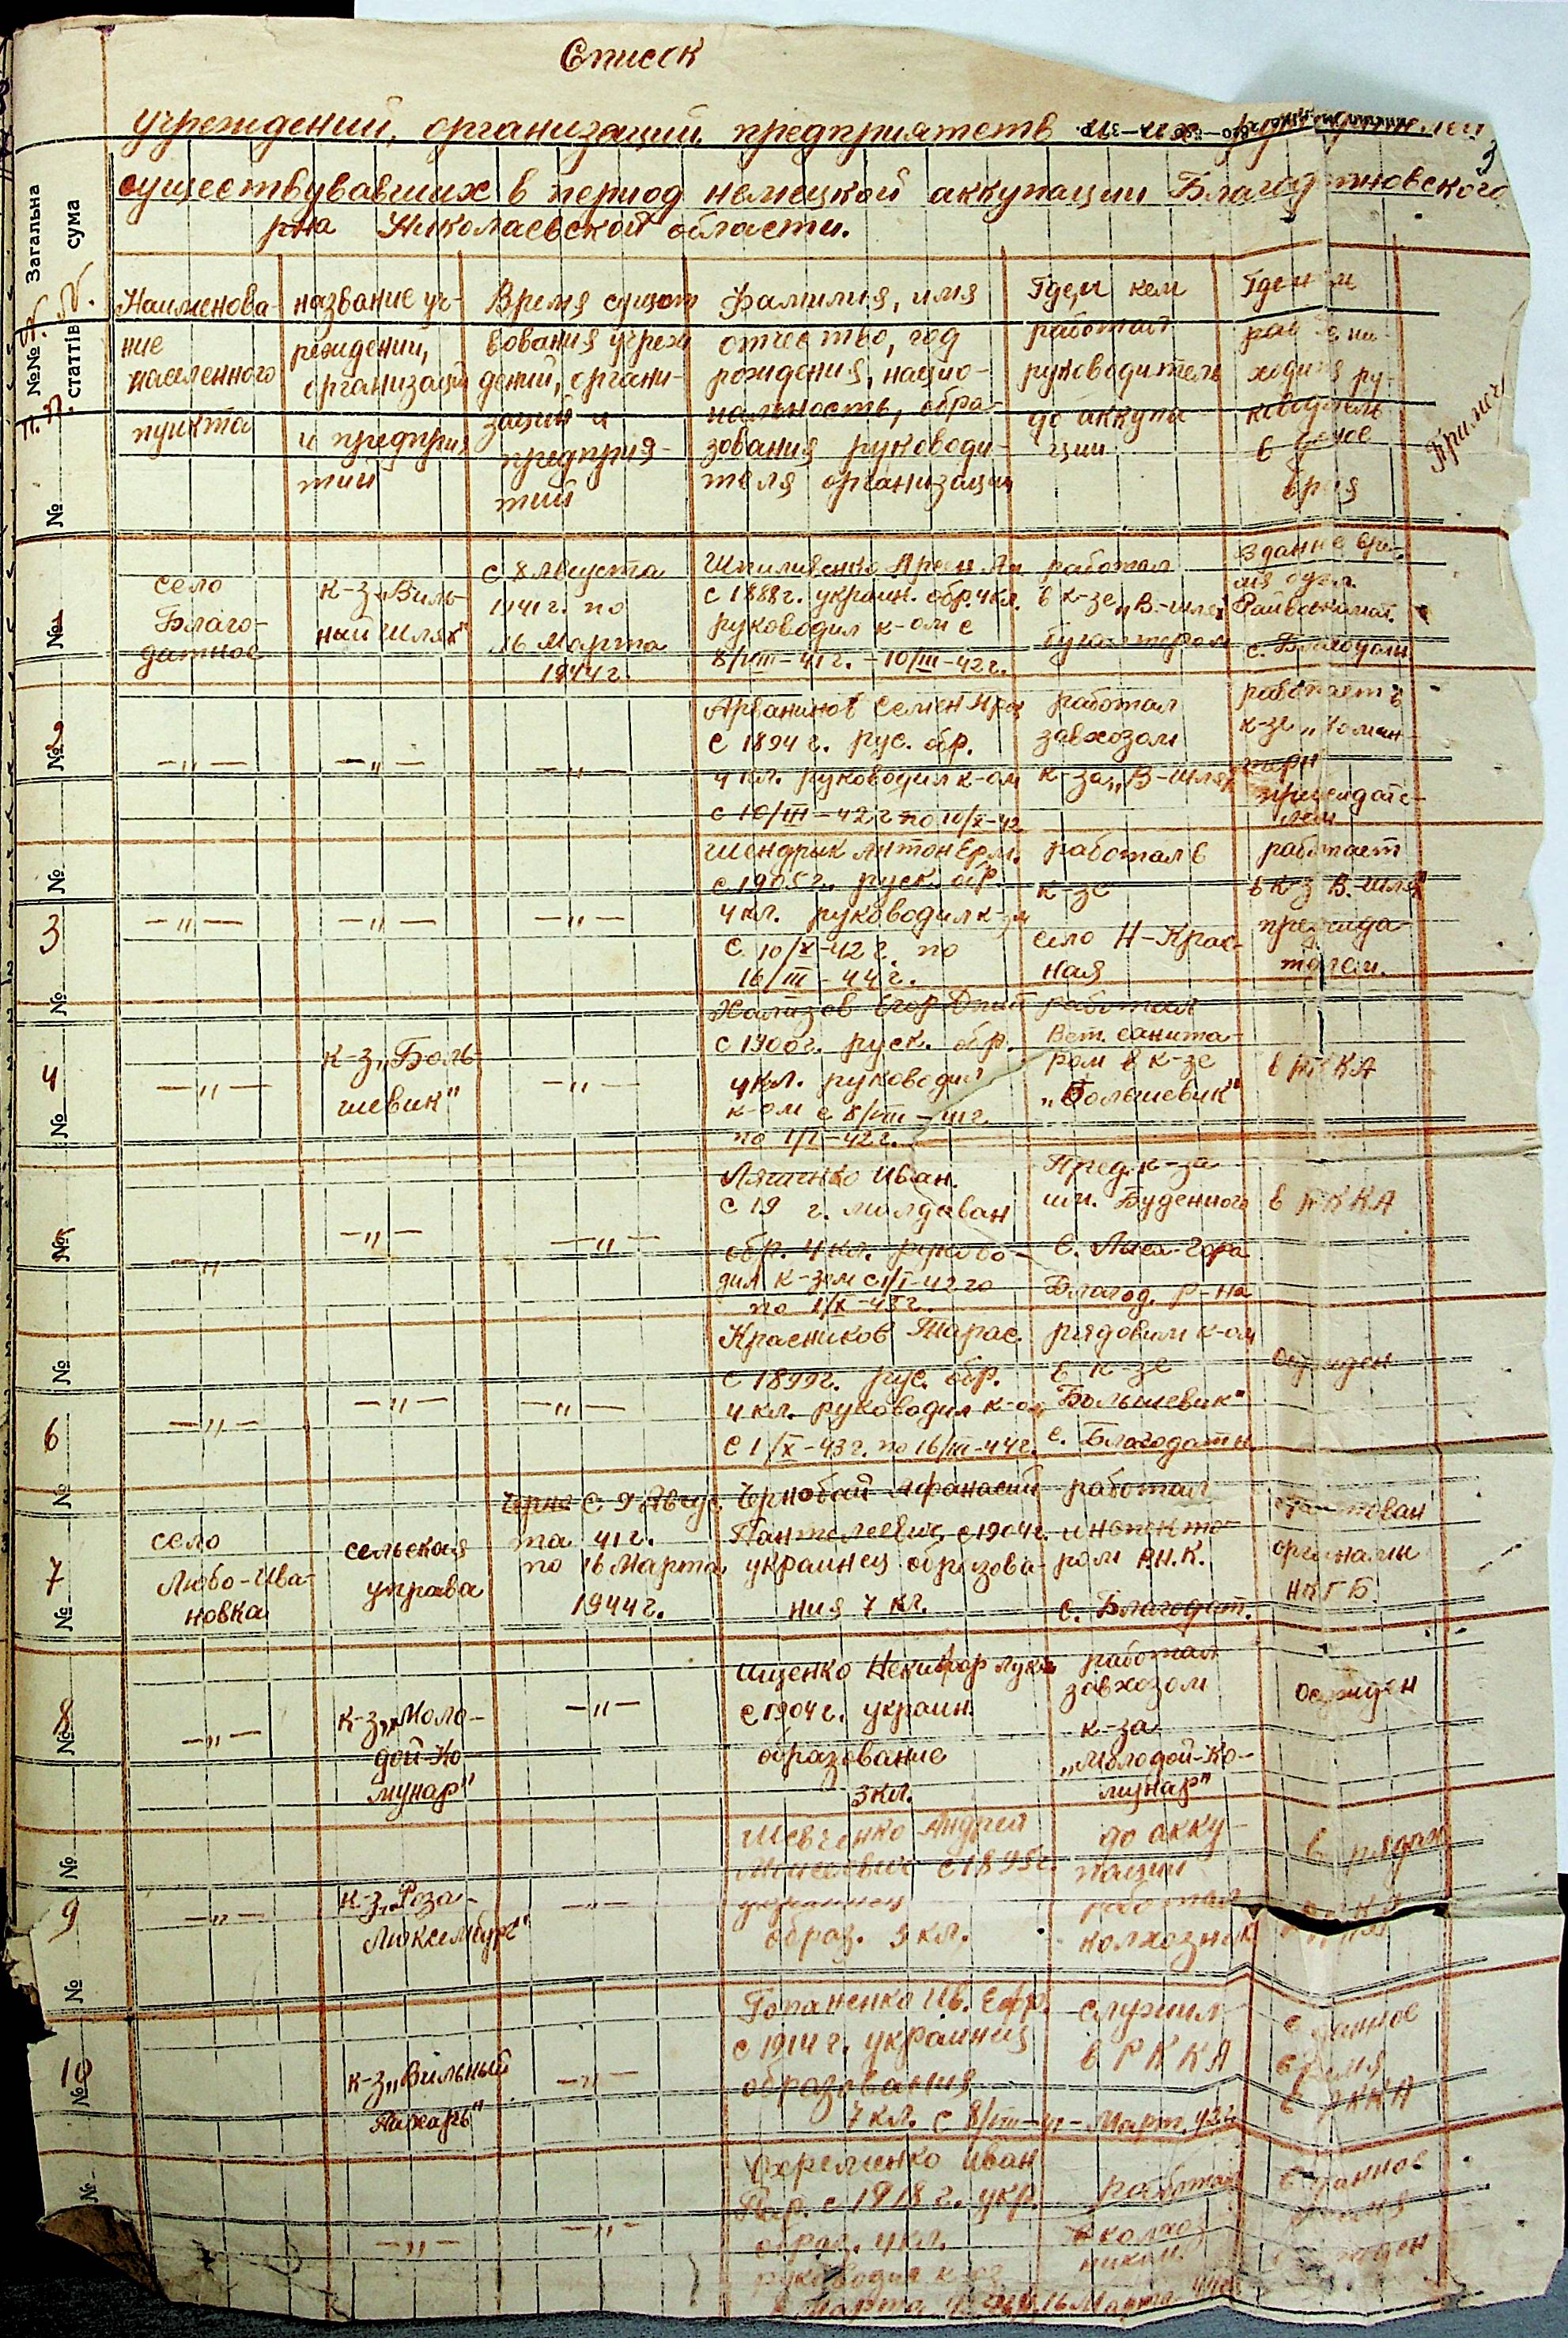 Список
учреждений, организаций предприятств и их
существувавших в период немецкой аккупации Благодатновского
р-на Николаевской области.
Загальна сума
№№ статтів
п.п.
Наименова-
ние
населенного
пункта
название уч-
реждении,
организаций
и предприя
тий
Время сущест
вования учреж
дений, органи-
заций и
предприя-
тий
Фамилия, имя
отчество, год
рождения, нацио-
нальность, обра-
зования руководи-
теля организации
Где, и кем
работал
руководитель
до аккупа
ции
Где и кем
ходится ру-
ководитель
в
время
Примеч
№1
село
Благо-
датное
к-з „Виль-
ный Шлях"
с 8 Августа
1941 г. по
16 Марта
1944 г.
с 1888 г. украин. обр. 4 кл.
руководил к-ом с
8/VIII-41 г. - 10/III-42 г.
работал
в к-зе „В-шлях"
бугалтером
В данне вре-
мя
с. Благодатн
№2
—„—
—„—
—„—
Семен
с 1894 г. рус. обр.
4 кл. руководил к-ом
с 10/III-42 г по 10/X-42
работал
завхозом
к-за „В-шлях"
работает в
к-зе
председате-
лем
№ 3
—„—
—„—
—„—
Шендрык Антон Ерм.
с 1905 г. руск. обр.
4 кл. руководил к-зм
с 10/X-42 г. по
16/III-44 г.
работал в
к-зе
село Н-Крас-
ная
работает
в к-з В. шлях
председа-
телем.
№ 4
—„—
к-з „Боль-
шевик"
—„—
Егор Дмит
с 1900 г. руск. обр.
4 кл. руководил
к-ом с 8/VIII-41 г.
по 1/I-42 г.
работал
Вет. санита-
ром в к-зе
„Большевик"
в РККА
№5
—„—
—„—
—„—
Иван.
с 19 г. молдаван
обр. 4 кл. руково-
дил к-зм с 1/I-42 го
по 1/X-43 г.
Пред. к-за
им. Буденного
с. Лиса-Гора
Благод. р-на
в РККА
№ 6
—„—
—„—
—„—
Красников Тарас.
с 1899 г. рус. обр.
4 кл. руководил к-ом
с 1/X-43 г. по 16/III-44 г.
рядовим к-ом
в к-зе
Большевик"
с. Благодатн.
Осужден
№ 7
село
Любо-Ива-
новка
сельская
управа
с 9 Авгус.
та 41 г.
по 16 Марта
1944 г.
Чернобай Афанасий
Пантелеевич с 1904 г.
украинец образова-
ния 7 кл.
работал
инспекто-
ром Р.Н.К.
с. Благодат.
органами
НКГБ
№8
—„—
к-з „Моло-
дой-Ко
мунар"
—„—
Ищенко Некифор Лук.
с 1904 г. украин.
образование
3 кл.
работал
завхозом
к-за
„Молодой-Ко-
мунар"
Осужден
№ 9
—„—
к-з „Роза-
Люксембург"
—„—
Шевченко Андрей
Моисеевич с 1895 г.
украинец
образ. 3 кл.
до акку-
пации
работал
колхозник
в рядах
РККА
№ 10
к-з „Вильный
Пахарь"
—„—
Гопаненко Ив. Ефр.
с 1914 г. украинец
образования
7 кл. с 8/VIII-41 - Март 42 г.
служил
в РККА
в данное
время
в РККА
№
—„—
—„—
Охременко Иван
с 1918 г. укр.
образ. 4 кл.
руководил к-оз
работал
в колхоз
ником.
в данное
время
осужден
16 Марта